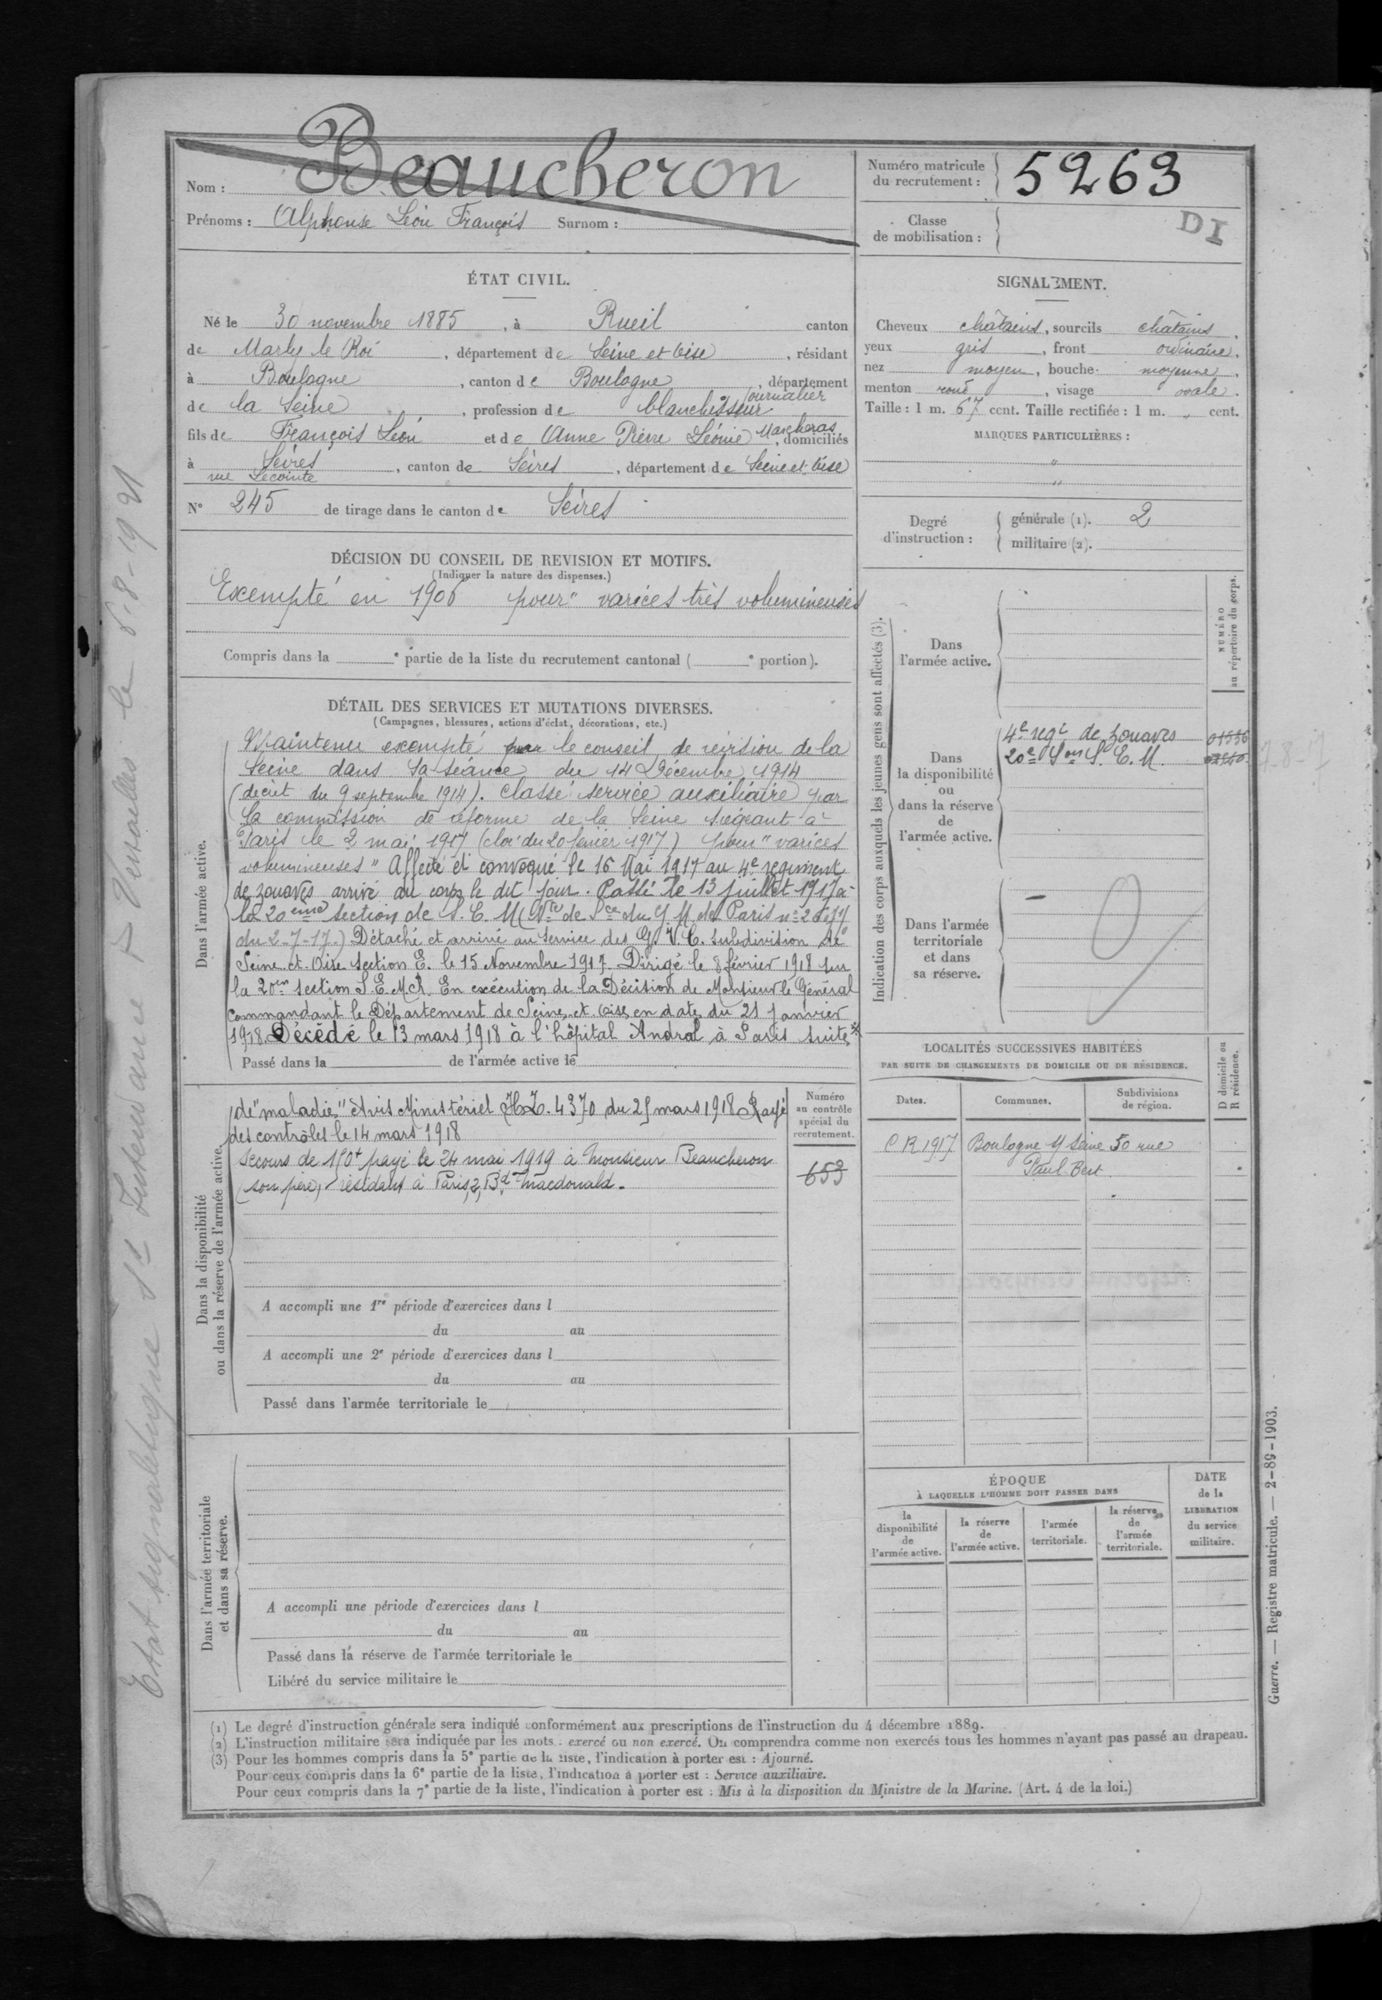 Nom : Beaucheron
Prénoms : Alphonse Léon François Surnom :
Numéro matricule du recrutement : 5263
Classe de mobilisation :
DI
ÉTAT CIVIL.
Né le 30 novembre 1885, à Rueil canton
de Marly le Roi, département de Seine et Oise, résidant
à Boulogne, canton de Boulogne, département
de la Seine, profession de blanchisseur journalier
fils de François Léon et de Anne Pierre Léonie Marcheras, domiciliés
à Sèvres, canton de Sèvres, département de Seine et Oise
rue Lecointe
N° 245 de tirage dans le canton de Sèvres
SIGNALEMENT.
Cheveux châtains, sourcils châtains,
yeux gris, front ordinaire,
nez moyen, bouche moyenne,
menton rond, visage ovale.
Taille : 1 m. 67 cent. Taille rectifiée : 1 m. " cent.
MARQUES PARTICULIÈRES :
"
"
Degré d'instruction : générale (1). 2
militaire (2).
DÉCISION DU CONSEIL DE REVISION ET MOTIFS.
(Indiquer la nature des dispenses.)
Exempté en 1906 pour " varices très volumineuses
Compris dans la e partie de la liste du recrutement cantonal ( e portion).
DÉTAIL DES SERVICES ET MUTATIONS DIVERSES.
(Campagnes, blessures, actions d'éclat, décorations, etc.)
Dans l'armée active.
Maintenu exempté par le conseil de révision de la
Seine dans sa séance du 14 Décembre 1914
(décret du 9 septembre 1914). Classé service auxiliaire par
la commission de réforme de la Seine siégeant à
Paris le 2 mai 1917 (loi du 20 février 1917) pour " varices
volumineuses " Affecté et convoqué le 16 Mai 1917 au 4e régiment
de zouaves arrivé au corps le dit jour. Passé le 13 juillet 1917 à
la 20ème section de S. E. M (Nte de Sce du G M de Paris n°
du 2-7-17.) Détaché et arrivé au service des G. V. C. subdivision de
Seine et Oise section E. le 15 Novembre 1917. Dirigé le 8 février 1918 sur
la 20em section S. E. M. R. En exécution de la Décision de Monsieur le Général
commandant le Département de Seine et Oise en date du 21 janvier
1918. Décédé le 13 mars 1918 à l'hôpital Andral à Paris suite
Passé dans la de l'armée active le
Dans la disponibilité ou dans la réserve de l'armée active.
de " maladie " Avis Ministériel 4370 du 25 mars 1918 Rayé
des contrôles le 14 mars 1918
Secours de 150f payé le 24 mai 1919 à Monsieur Beaucheron
(son père) résidant à Paris, 2, Bd Macdonald.
Numéro au contrôle spécial du recrutement.
653
A accompli une 1re période d'exercices dans l
du au
A accompli une 2e période d'exercices dans l
du au
Passé dans l'armée territoriale le
Dans l'armée territoriale et dans sa réserve.
A accompli une période d'exercices dans l
du au
Passé dans la réserve de l'armée territoriale le
Libéré du service militaire le
Indication des corps auxquels les jeunes gens sont affectés (3).
NUMÉRO au répertoire du corps.
Dans l'armée active.
Dans la disponibilité ou dans la réserve de l'armée active.
4e regt de zouaves
20e Son S. E. M.
Dans l'armée territoriale et dans sa réserve.
LOCALITÉS SUCCESSIVES HABITÉES
PAR SUITE DE CHANGEMENTS DE DOMICILE OU DE RÉSIDENCE.
D domicile ou R résidence.
Dates. Communes. Subdivisions de région.
C R 1917 Boulogne s/ Seine 50 rue
Paul Bert
ÉPOQUE
À LAQUELLE L'HOMME DOIT PASSER DANS
la disponibilité de l'armée active.
la réserve de l'armée active.
l'armée territoriale.
la réserve de l'armée territoriale.
DATE de la LIBÉRATION du service militaire.
(1) Le degré d'instruction générale sera indiqué conformément aux prescriptions de l'instruction du 4 décembre 1889.
(2) L'instruction militaire sera indiquée par les mots : exercé ou non exercé. On comprendra comme non exercés tous les hommes n'ayant pas passé au drapeau.
(3) Pour les hommes compris dans la 5e partie de la liste, l'indication à porter est : Ajourné.
Pour ceux compris dans la 6e partie de la liste, l'indication à porter est : Service auxiliaire.
Pour ceux compris dans la 7e partie de la liste, l'indication à porter est : Mis à la disposition du Ministre de la Marine. (Art. 4 de la loi.)
Guerre. — Registre matricule. — 2-89-1903.
Etat signalétique St Intendance Versailles le 6-8-1921